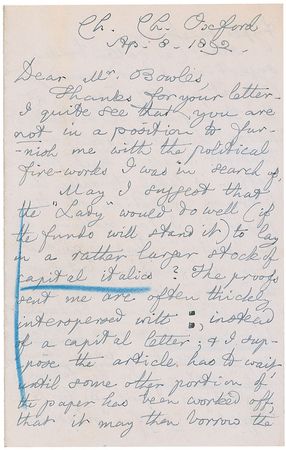 Ch. Ch. Oxford
Ap. 8. 1892.
Dear Mr. Bowles,
Thanks for your letter.
I quite see that you are
not in a position to fur-
-nish me with the political
fire-works I was in search of.
May I suggest that
the "Lady" would do well (if
the funds will stand it) to lay
in a rather larger stock of
capital italics? The proofs
sent me are often thickly
interspersed with :, instead
of a capital letter; & I sup-
pose the article has to wait,
until some other portion of
the paper has been worked off,
that it may then borrow the